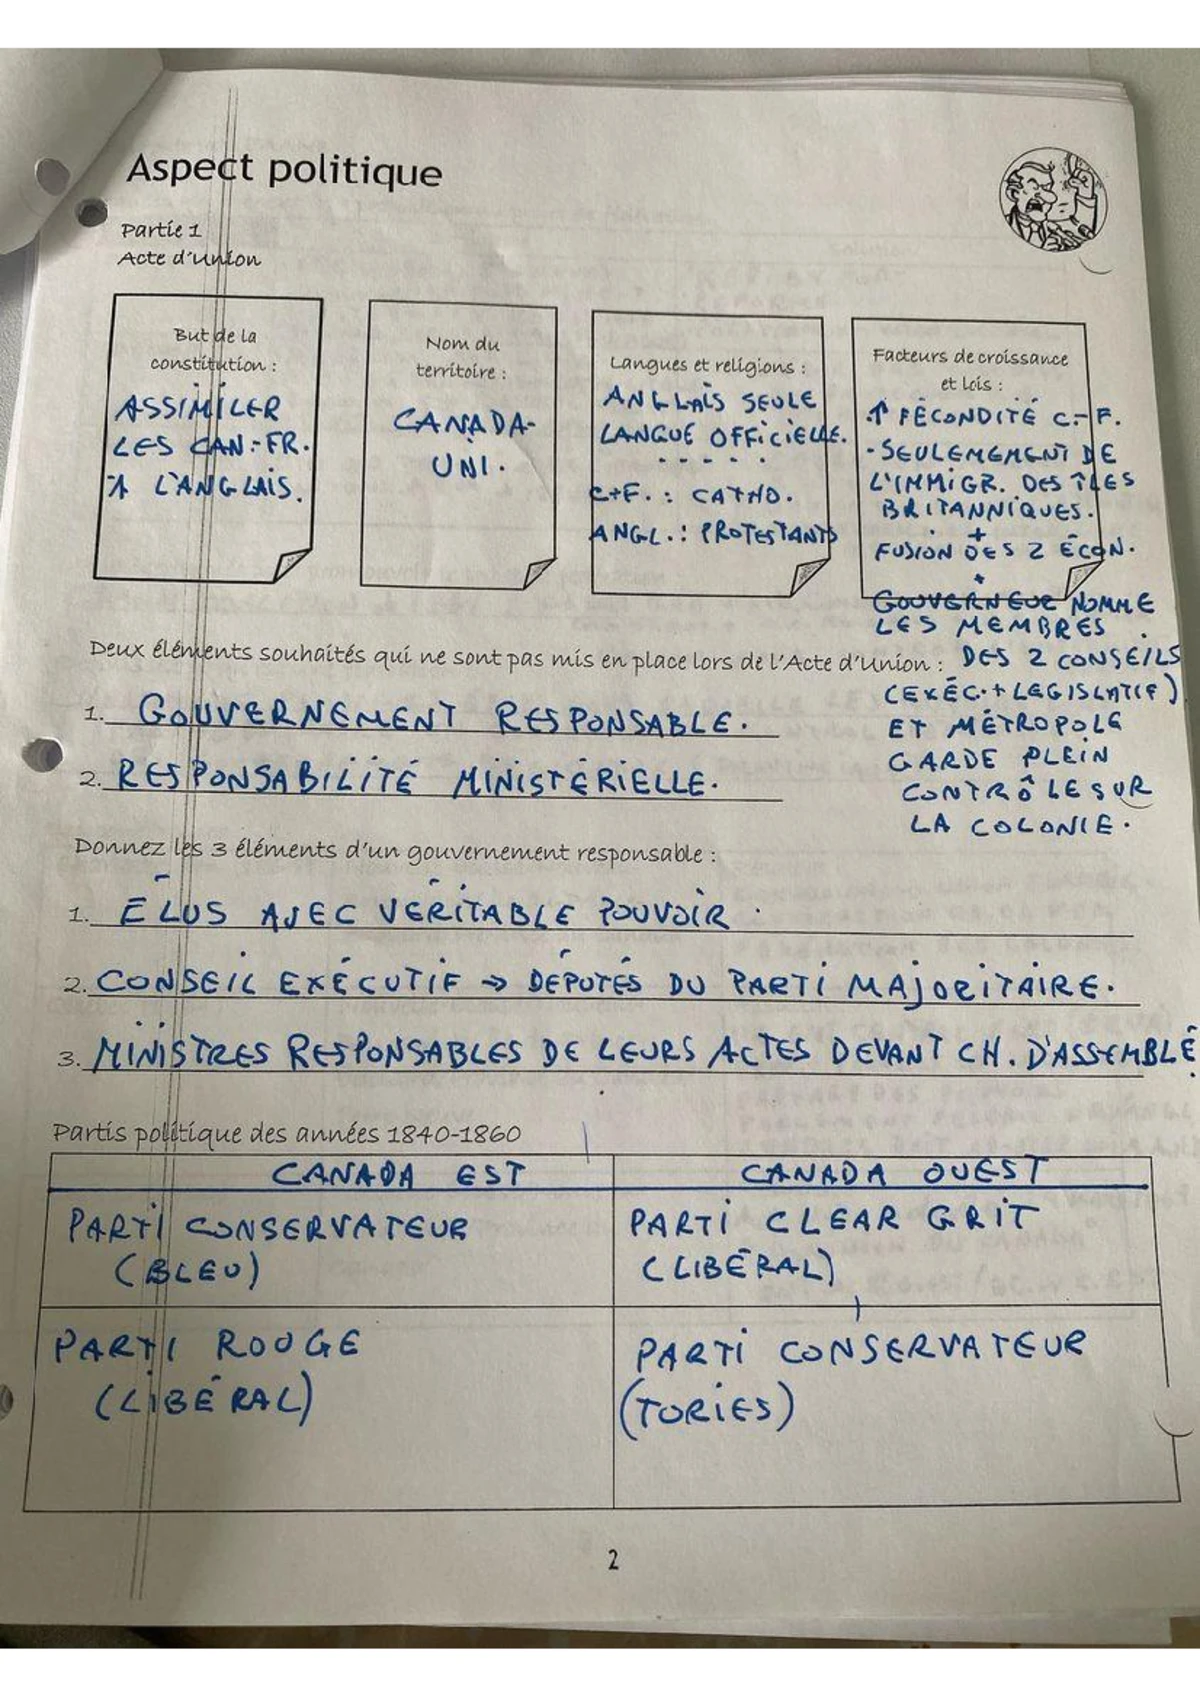 Aspect politique
Partie 1
Acte d'union
But de la
constitution :
ASSIMILER
LES CAN.-FR.
À L'ANGLAIS.
Nom du
territoire :
CANADA-
UNI.
Langues et religions :
ANGLAIS SEULE
LANGUE OFFICIELLE.
- - - - -
C.F. : CATHO.
ANGL. : PROTESTANTS
Facteurs de croissance
et lois :
↑ FÉCONDITÉ C.-F.
- SEULEMEMENT DE
L'IMMIGR. DES ÎLES
BRITANNIQUES.
+
FUSION DES 2 ÉCON.
+
GOUVERNEUR NOMME
LES MEMBRES
DES 2 CONSEILS
(EXÉC. + LEGISLATIF)
ET MÉTROPOLE
GARDE PLEIN
CONTRÔLE SUR
LA COLONIE.
Deux éléments souhaités qui ne sont pas mis en place lors de l'Acte d'Union :
1. GOUVERNEMENT RESPONSABLE.
2. RESPONSABILITÉ MINISTÉRIELLE.
Donnez les 3 éléments d'un gouvernement responsable :
1. ÉLUS AVEC VÉRITABLE POUVOIR.
2. CONSEIL EXÉCUTIF → DÉPUTÉS DU PARTI MAJORITAIRE.
3. MINISTRES RESPONSABLES DE LEURS ACTES DEVANT CH. D'ASSEMBLÉ
Partis politique des années 1840-1860
CANADA EST CANADA OUEST
PARTI CONSERVATEUR PARTI CLEAR GRIT
(BLEU) (LIBÉRAL)
PARTI ROUGE PARTI CONSERVATEUR
(LIBÉRAL) (TORIES)
2